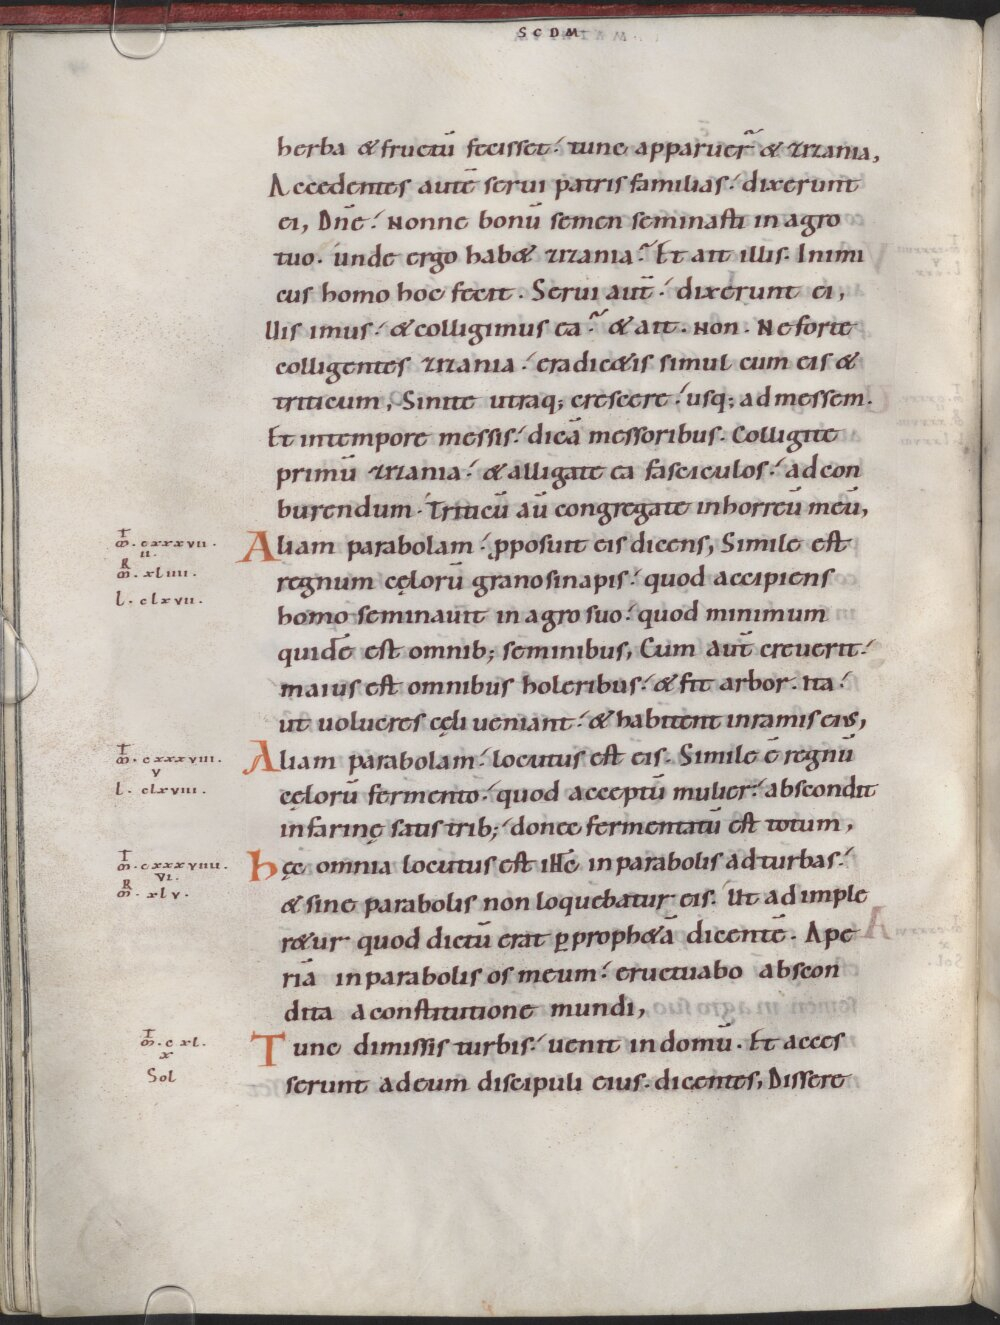 SCDM
herba & fructū fecisset. tunc apparuer̄ & zizania,
Accedentes autē serui patris familias. dixerunt
ei, Dn̄e. Nonne bonū semen seminasti in agro
tuo. unde ergo hab& zizania. Et ait illis. Inimi
cus homo hoc fecit. Serui aut̄. dixerunt ei,
Uis imus. & colligimus ea. & ait. Non. Ne forte
colligentes zizania. eradic&is simul cum eis &
triticum, Sinite utraq; crescere. usq; ad messem.
Et intempore messis. dicā messoribus. Colligite
primū zizania. & alligate ea fasciculos. ad con
burendum. Triticū aū congregate inhorreū meū,
ꝳ. cxxxvii.
ii.
R
ꝳ. xliiii.
l. clxvii.
Aliam parabolam. ꝓposuit eis dicens, Simile est
regnum cęlorū grano sinapis. quod accipiens
homo seminauit in agro suo. quod minimum
quidē est omnib; seminibus, Cum aut̄ creuerit.
maius est omnibus holeribus. & fit arbor. Ita.
ut uolucres cęli ueniant. & habitent inramis eius,
ꝳ. cxxxviii.
v
l. clxviii.
Aliam parabolam. locutus est eis. Simile ē regnū
cęlorū fermento. quod acceptū mulier. abscondit
infarinę satis trib; donec fermentatū est totum,
ꝳ. cxxxviiii.
vi.
R
ꝳ. xlv.
hęc omnia locutus est ih̄c inparabolis ad turbas.
& sine parabolis non loquebatur eis. Ut ad imple
r&ur quod dictū erat ꝑ proph&ā dicentē. Ape
riā inparabolis os meum. eructuabo abscon
dita a constitutione mundi,
ꝳ. cxl.
x
Sol
Tunc dimissis turbis. uenit indomū. Et acces
serunt ad eum discipuli eius. dicentes, Dissere